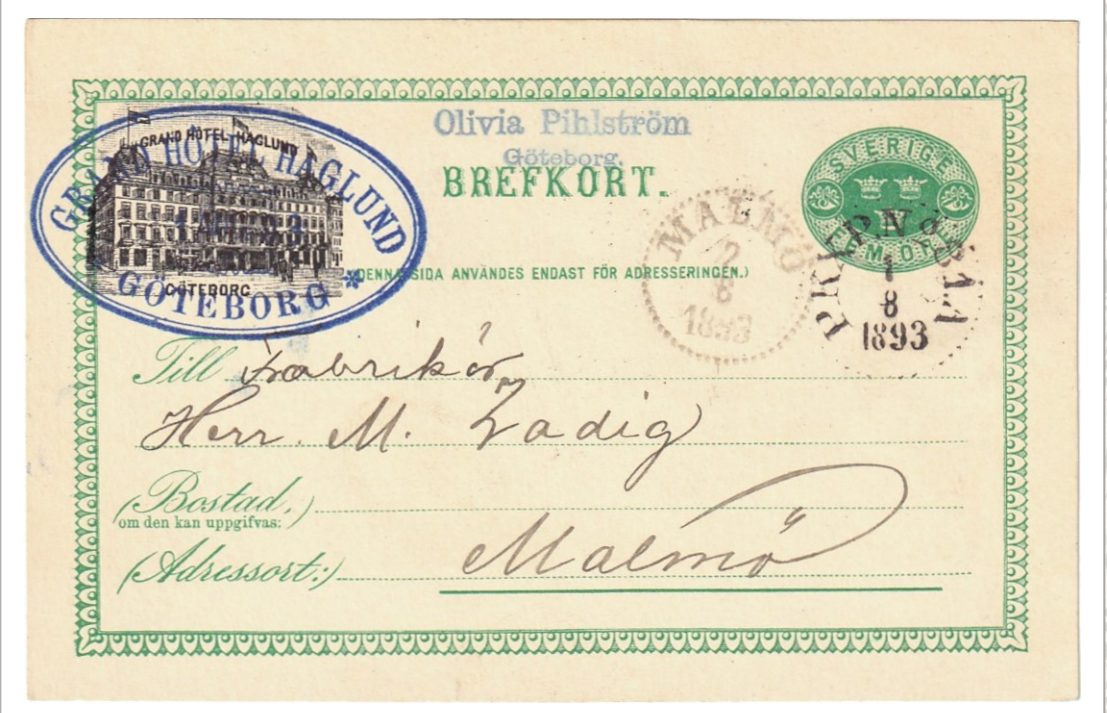 GRAND HÔTEL HAGLUND
GÖTEBORG
GRAND HOTEL HAGLUND
GÖTEBORG *
Olivia Pihlström
Göteborg.
BREFKORT.
SVERIGE
FEM ÖRE
(DENNA SIDA ANVÄNDES ENDAST FÖR ADRESSERINGEN.)
MALMÖ
2
8
1893
1
8
1893
Till Fabrikör
Herr. M. Zadig
(Bostad,)
om den kan uppgifvas:
(Adressort:) Malmö